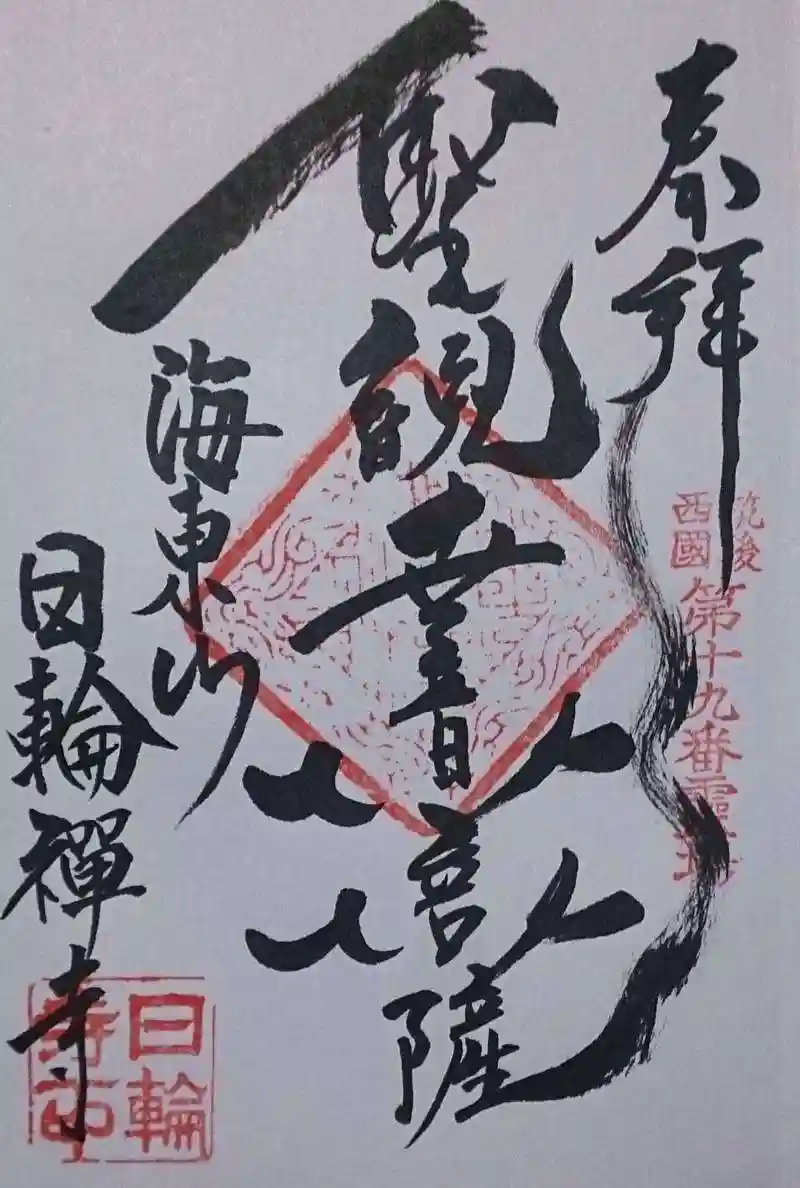 奉拝
筑後
西國
第十九番霊場
聖観世音菩薩
海東山
日輪禪寺
日輪
寺印